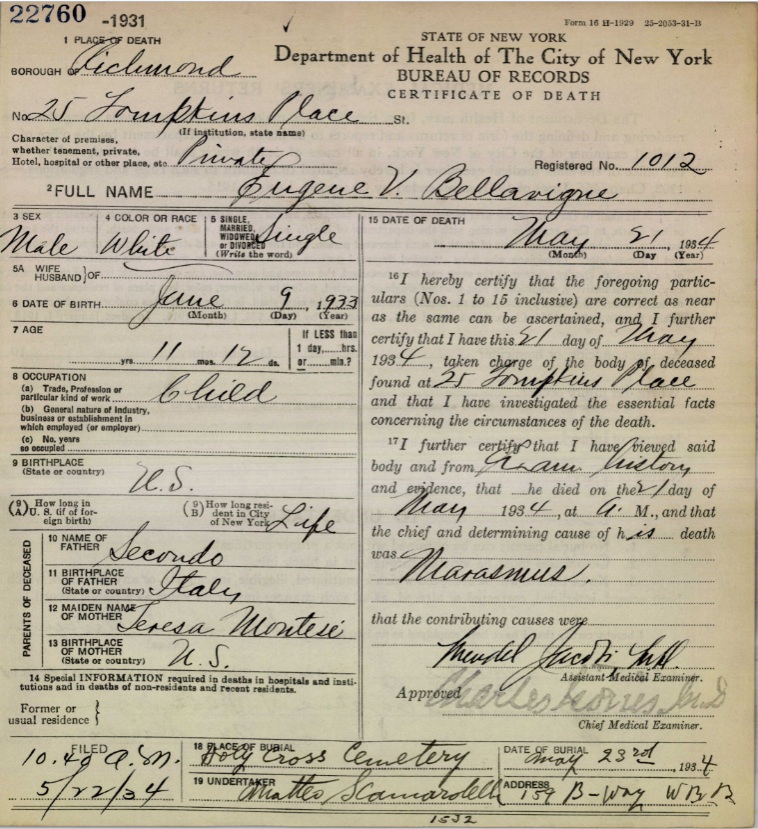 22760 -1931
Form 16 H-1929 25-2053-31-B
STATE OF NEW YORK
Department of Health of The City of New York
BUREAU OF RECORDS
CERTIFICATE OF DEATH
1 PLACE OF DEATH
BOROUGH OF Richmond
No. 25 Tompkins Place St.
(If institution, state name)
Character of premises,
whether tenement, private,
Hotel, hospital or other place, etc. Private
Registered No. 1012
2 FULL NAME Eugene V. Bellavigne
3 SEX Male
4 COLOR OR RACE White
5 SINGLE, MARRIED, WIDOWED or DIVORCED (Write the word) Single
5A WIFE HUSBAND } OF
6 DATE OF BIRTH June 9, 1933
(Month) (Day) (Year)
7 AGE
yrs. 11 mos. 12 ds.
If LESS than
1 day, hrs.
or min.?
8 OCCUPATION
(a) Trade, Profession or
particular kind of work Child
(b) General nature of industry,
business or establishment in
which employed (or employer)
(c) No. years
so occupied
9 BIRTHPLACE
(State or country) U.S.
(9 A) How long in
U. S. (if of for-
eign birth)
(9 B) How long resi-
dent in City
of New York Life
PARENTS OF DECEASED
10 NAME OF
FATHER Secondo
11 BIRTHPLACE
OF FATHER
(State or country) Italy
12 MAIDEN NAME
OF MOTHER Teresa Montese
13 BIRTHPLACE
OF MOTHER
(State or country) U.S.
14 Special INFORMATION required in deaths in hospitals and insti-
tutions and in deaths of non-residents and recent residents.
Former or
usual residence }
15 DATE OF DEATH May 21, 1934
(Month) (Day (Year)
16 I hereby certify that the foregoing partic-
ulars (Nos. 1 to 15 inclusive) are correct as near
as the same can be ascertained, and I further
certify that I have this 21 day of May
1934, taken charge of the body of deceased
found at 25 Tompkins Place
and that I have investigated the essential facts
concerning the circumstances of the death.
17 I further certify that I have viewed said
body and from history
and evidence, that he died on the 21 day of
May 1934, at A. M., and that
the chief and determining cause of his death
was
Marasmus.
that the contributing causes were
Mendel Jacobi, M.D.
Assistant Medical Examiner.
Approved Charles Norris, M.D
Chief Medical Examiner.
FILED
10.40 A.M.
5/22/34
18 PLACE OF BURIAL
Holy Cross Cemetery
DATE OF BURIAL
May 23rd 1934
19 UNDERTAKER
Matteo Scamardella
ADDRESS
159 B-Way W.B.
1532